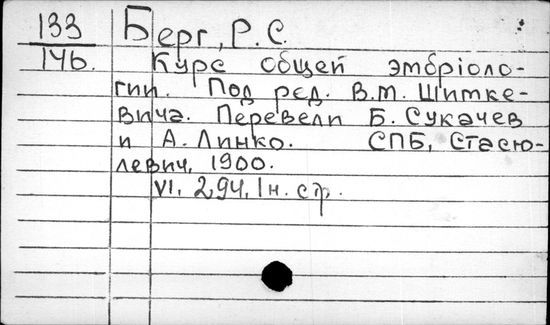 133 Берг, Р. С.
146. Курс общей эмбріоло-
гии. Под ред. В.М. Шимке-
вича. Перевели Б. Сукачев
и А. Линко. СПБ, Стасю-
левич, 1900.
VI, 294, 1 н. стр.